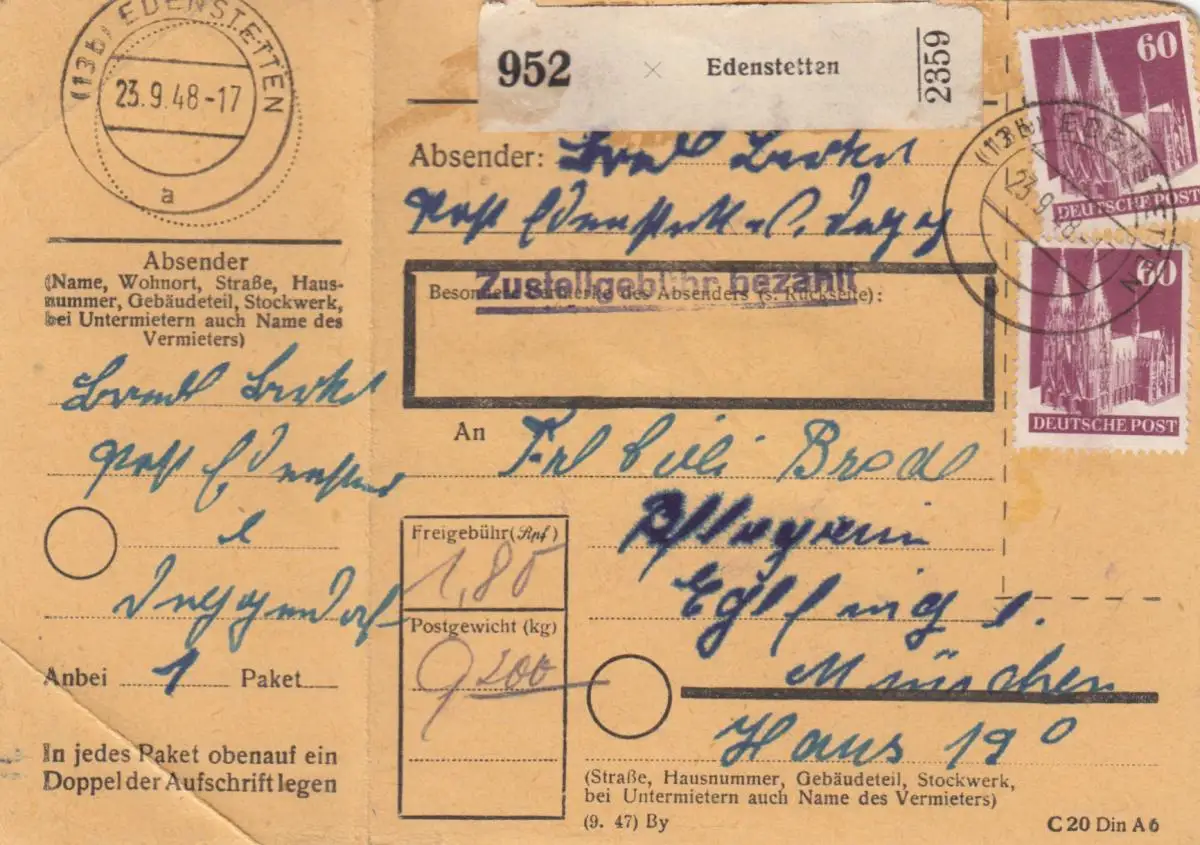 (13b) EDENSTETTEN
23.9.48-17
a
952 × Edenstetten 2359
60
DEUTSCHE POST
(13b) EDENSTETTEN
23.9.48-17
60
DEUTSCHE POST
Absender:
Post Edenstett
Zustellgebühr bezahlt
Besondere Vermerke des Absenders (s. Rückseite):
Absender
(Name, Wohnort, Straße, Haus-
nummer, Gebäudeteil, Stockwerk,
bei Untermietern auch Name des
Vermieters)
Post Edenstett
Deggendorf
Anbei 1 Paket
In jedes Paket obenauf ein
Doppel der Aufschrift legen
An
Pflegerin
Eglfing
München
Haus 19
Freigebühr (Rpf)
1,80
Postgewicht (kg)
(Straße, Hausnummer, Gebäudeteil, Stockwerk,
bei Untermietern auch Name des Vermieters)
(9. 47) By
C 20 Din A 6